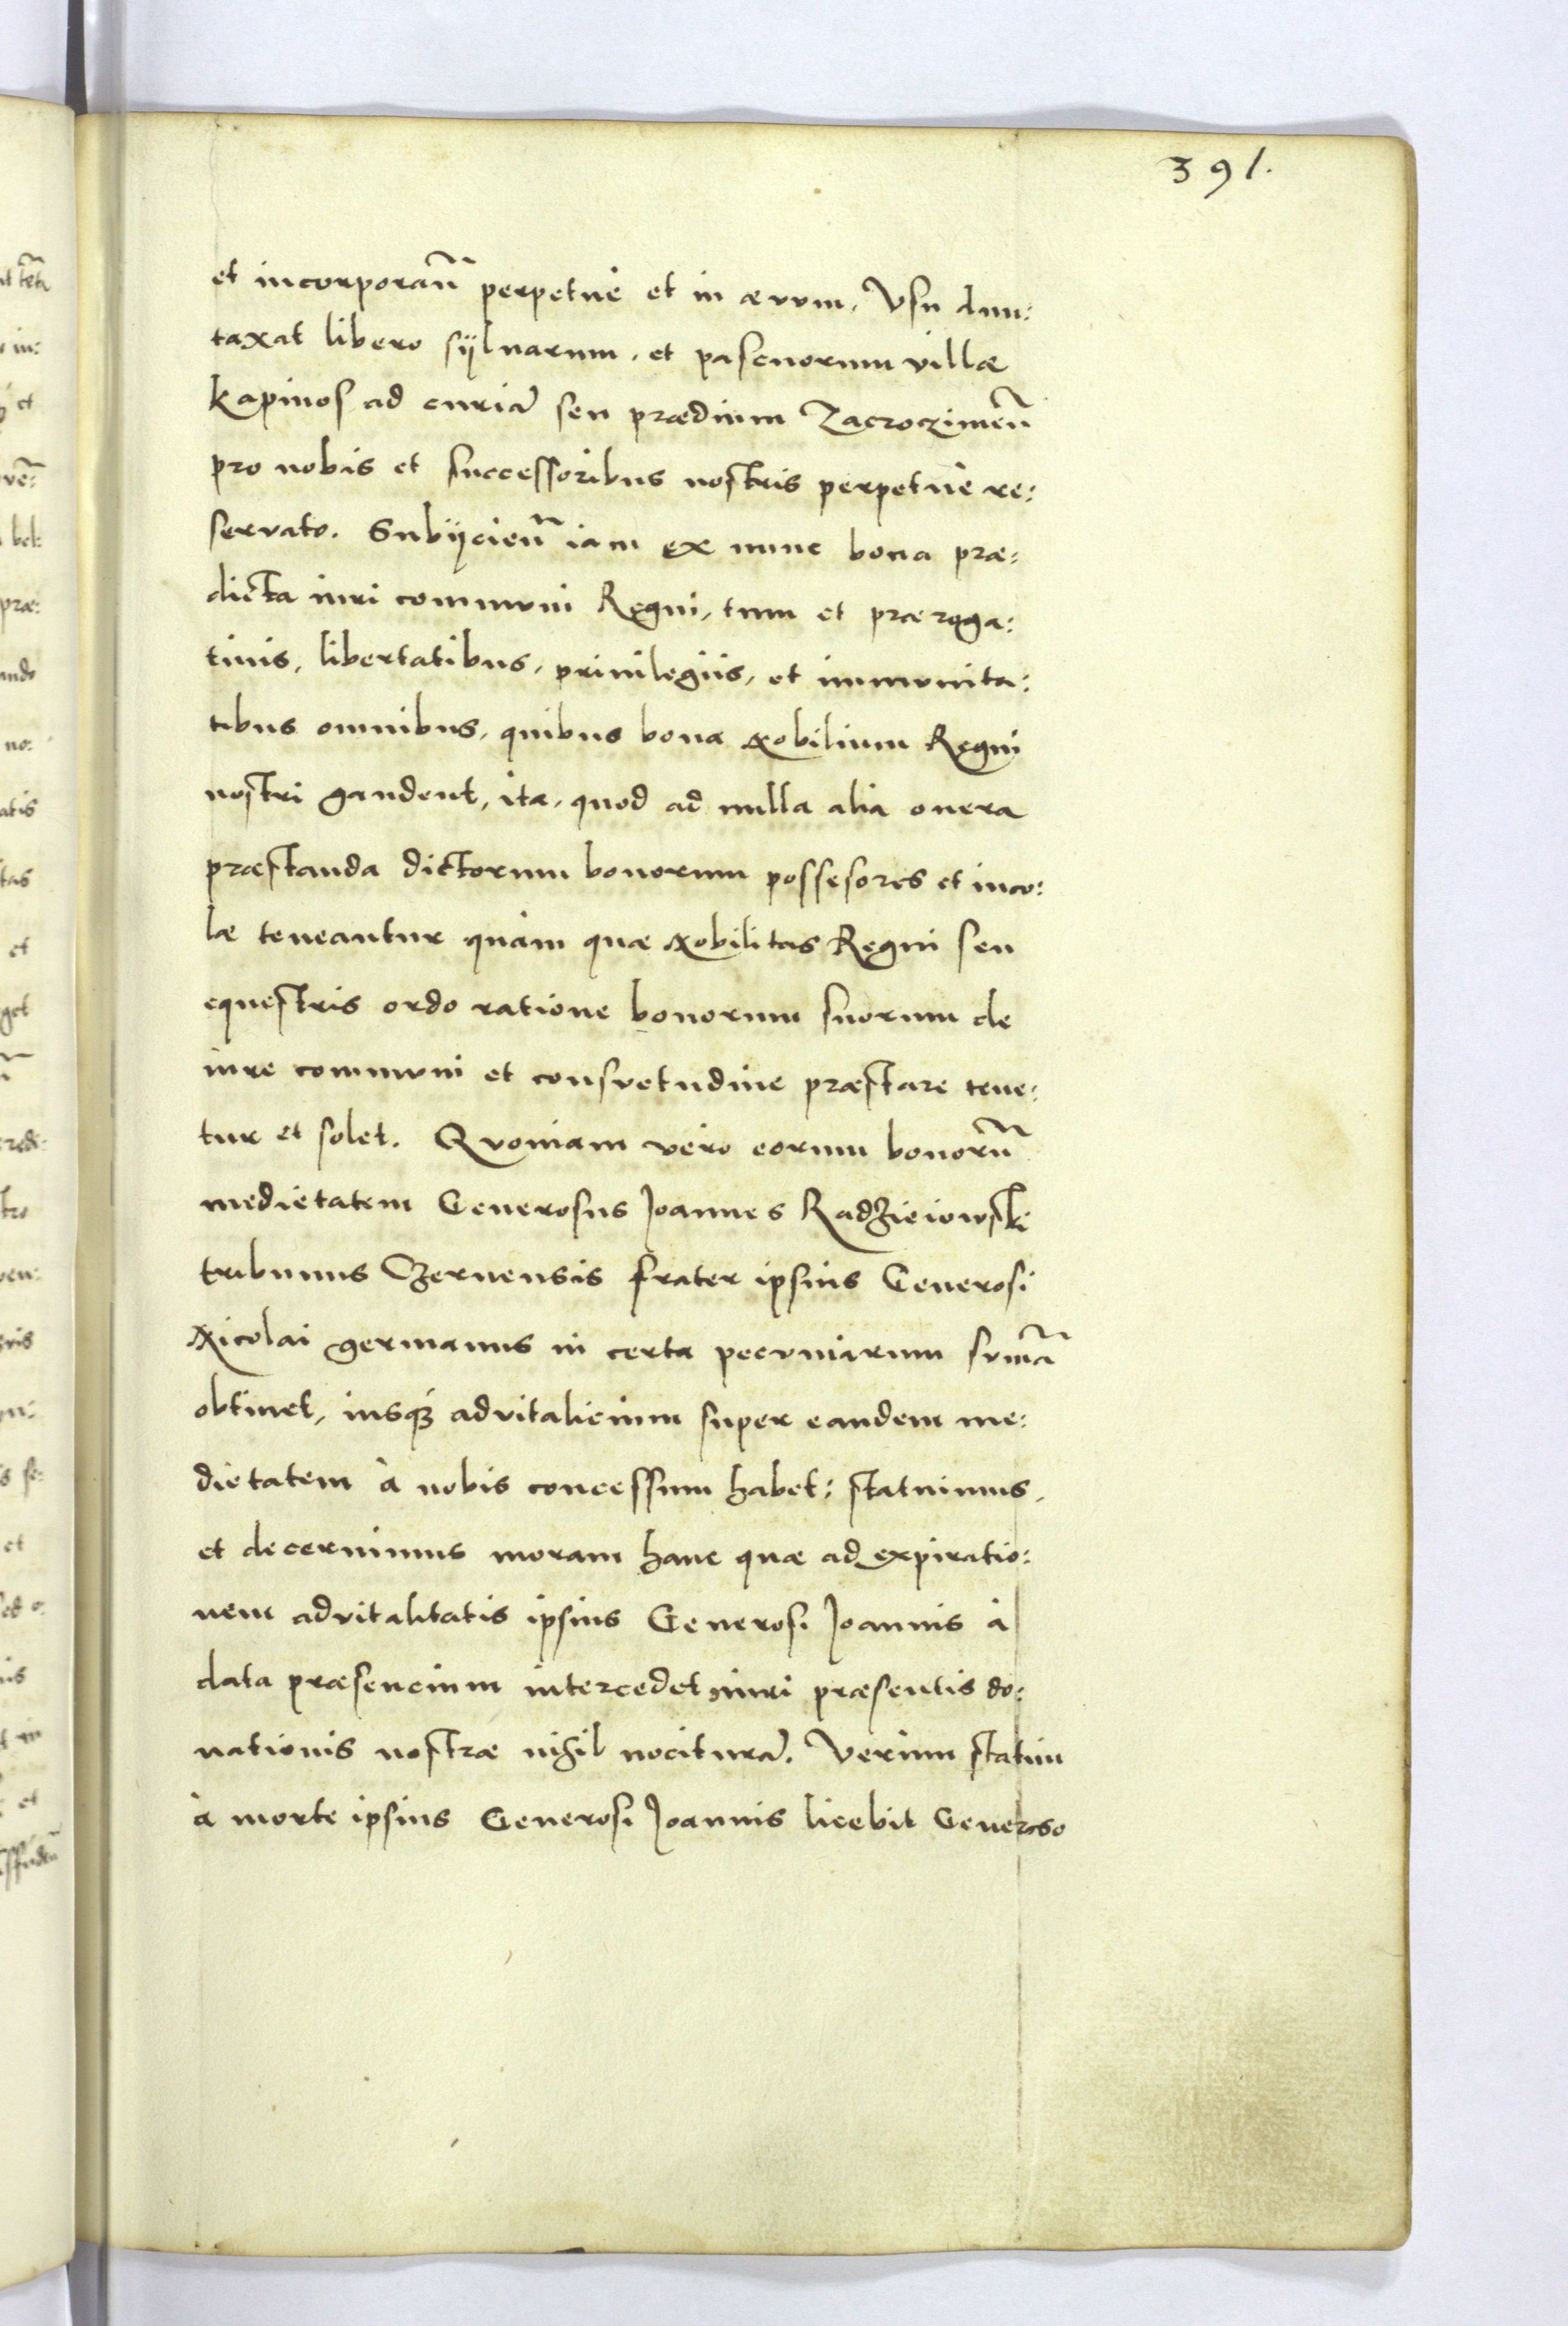 391.
et incorporan̄ perpetuè et in ævum. Vsu dun:
taxat libero sÿluarum, et pascuorum villæ
Kapinos ad curiā seu prædium Zacroczimen̄
pro nobis et successoribus nostris perpetuè re:
seruato. Subijcien̄ iam ex nunc bona præ:
dicta iuri communi Regni, tum et præroga:
tiuis, libertatibus, priuilegijs, et immunita:
tibus omnibus, quibus bona Nobilium Regni
nostri gaudent, ita, quod ad nulla alia onera
præstanda dictorum bonorum possesores et inco:
læ teneantur quàm quæ Nobilitas Regni seu
equestris ordo ratione bonorum suorum de
iure communi et consvetudine præstare tene:
tur et solet. Qvoniam vero eorum bonorū
medietatem Generosus Joannes Radzieiowski
tribunus Czernensis frater ipsius Generosi
Nicolai germanus in certa pecuniarum sum̄a
obtinet, iusq3 aduitalicium super eandem me:
dietatem à nobis concessum habet: statuimus,
et decernimus moram hanc quæ ad expiratio:
nem aduitalitatis ipsius Generosi Joannis à
data præsencium intercedet, iuri præsentis do:
nationis nostræ nihil nociturā. Verùm statim
à morte ipsius Generosi Joannis licebit Generoso